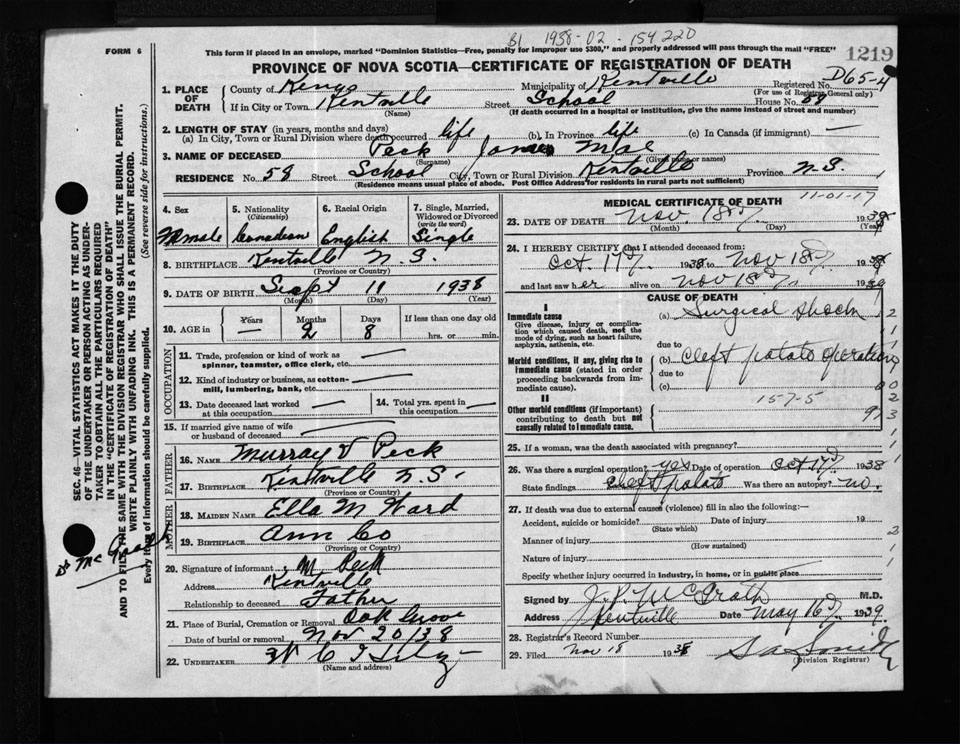 B1 1938-02-154220
FORM 6
This form if placed in an envelope, marked "Dominion Statistics—Free, penalty for improper use $300," and properly addressed will pass through the mail "FREE"
1219
PROVINCE OF NOVA SCOTIA—CERTIFICATE OF REGISTRATION OF DEATH
D65-4
1. PLACE OF DEATH
County of Kings Municipality of Kentville Registered No.
(For use of Registrar General only)
If in City or Town Kentville Street School House No. 58
(Name) (If death occurred in a hospital or institution, give the name instead of street and number)
2. LENGTH OF STAY (in years, months and days)
(a) In City, Town or Rural Division where death occurred life (b) In Province life (c) In Canada (if immigrant) —
3. NAME OF DECEASED Peck James Mac
(Surname) (Given name or names)
RESIDENCE No. 58 Street School City, Town or Rural Division Kentville Province N.S.
(Residence means usual place of abode. Post Office Address for residents in rural parts not sufficient)
SEC. 46—VITAL STATISTICS ACT MAKES IT THE DUTY
OF THE UNDERTAKER OR PERSON ACTING AS UNDER-
TAKER TO OBTAIN ALL THE PARTICULARS REQUIRED
IN THE "CERTIFICATE OF REGISTRATION OF DEATH"
AND TO FILE THE SAME WITH THE DIVISION REGISTRAR WHO SHALL ISSUE THE BURIAL PERMIT.
WRITE PLAINLY WITH UNFADING INK. THIS IS A PERMANENT RECORD.
Every item of information should be carefully supplied. (See reverse side for instructions.)
Dr McGrath
4. Sex 5. Nationality (Citizenship) 6. Racial Origin 7. Single, Married, Widowed or Divorced (write the word)
Male Canadian English Single
8. BIRTHPLACE Kentville N.S.
(Province or Country)
9. DATE OF BIRTH Sept 11 1938
(Month) (Day) (Year)
10. AGE in Years — Months 2 Days 8 If less than one day old
hrs. or min.
OCCUPATION
11. Trade, profession or kind of work as spinner, teamster, office clerk, etc. —
12. Kind of industry or business, as cotton-mill, lumbering, bank, etc. —
13. Date deceased last worked at this occupation — 14. Total yrs. spent in this occupation —
15. If married give name of wife or husband of deceased —
FATHER
16. NAME Murray V Peck
17. BIRTHPLACE Kentville N.S.
(Province or Country)
MOTHER
18. MAIDEN NAME Ella M Ward
19. BIRTHPLACE Ann Co
(Province or Country)
20. Signature of informant M Peck
Address Kentville
Relationship to deceased Father
21. Place of Burial, Cremation or Removal Oak Grove
Date of burial or removal Nov 20/38
22. UNDERTAKER
(Name and address)
MEDICAL CERTIFICATE OF DEATH
11-01-17
23. DATE OF DEATH Nov. 18 1938
(Month) (Day) (Year)
24. I HEREBY CERTIFY that I attended deceased from:
Oct. 17 1938 to Nov 18 1938
and last saw her alive on Nov 18
CAUSE OF DEATH
I
Immediate cause
Give disease, injury or complication which caused death, not the mode of dying, such as heart failure, asphyxia, asthenia, etc.
(a) Surgical Shock
due to
Morbid conditions, if any, giving rise to immediate cause (stated in order proceeding backwards from immediate cause).
(b) Cleft palate operation
due to
(c)
157-5
II
Other morbid conditions (if important) contributing to death but not causally related to immediate cause.
25. If a woman, was the death associated with pregnancy?
26. Was there a surgical operation? yes Date of operation Oct 17 1938
State findings Cleft palate Was there an autopsy? no.
27. If death was due to external causes (violence) fill in also the following:
Accident, suicide or homicide? Date of injury 19
(State which)
Manner of injury
(How sustained)
Nature of injury
Specify whether injury occurred in industry, in home, or in public place
Signed by J.P. McGrath M.D.
Address Kentville Date May 16 1939.
28. Registrar's Record Number
29. Filed Nov 18 1938
(Division Registrar)